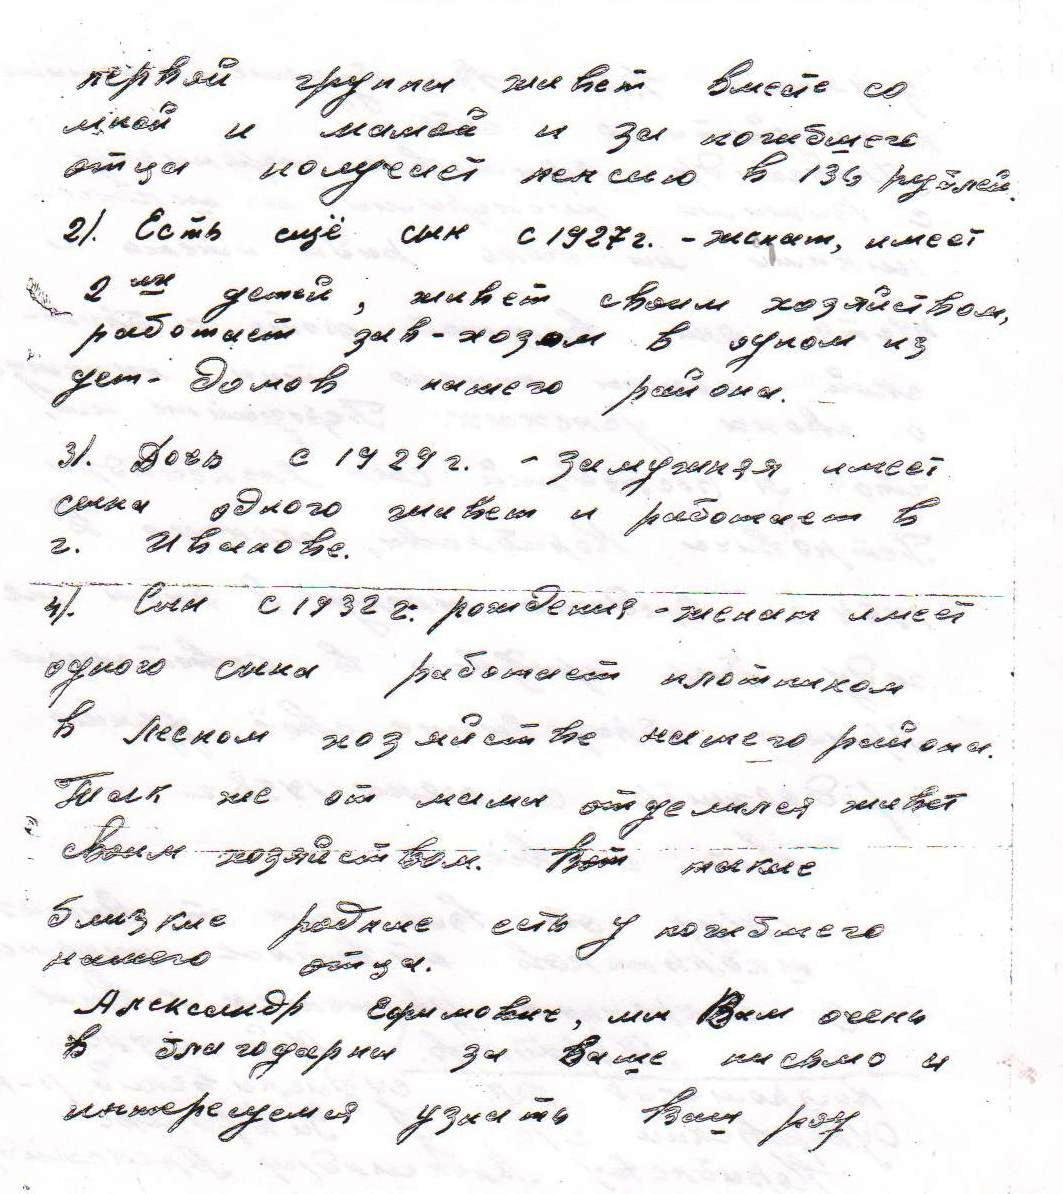 первой группы живет вместе со
мной и мамой и за погибшего
отца получает пенсию в 136 рублей.
2/. Есть ещё сын с 1927г. - женат, имеет
2ых детей, живет своим хозяйством,
работает зав-хозом в одном из
дет-домов нашего района.
3/. Дочь с 1929г. - замужняя имеет
сына одного живет и работает в
г. Иванове.
4/. Сын с 1932г. рождения - женат имеет
одного сына работает плотником
в Лесном хозяйстве нашего района.
Так же от мамы отделился живет
своим хозяйством. Вот такие
близкие родные есть у погибшего
нашего отца.
Александр Ефимович, мы Вам очень
в благодарны за Ваше письмо и
интересуемся узнать Ваш род